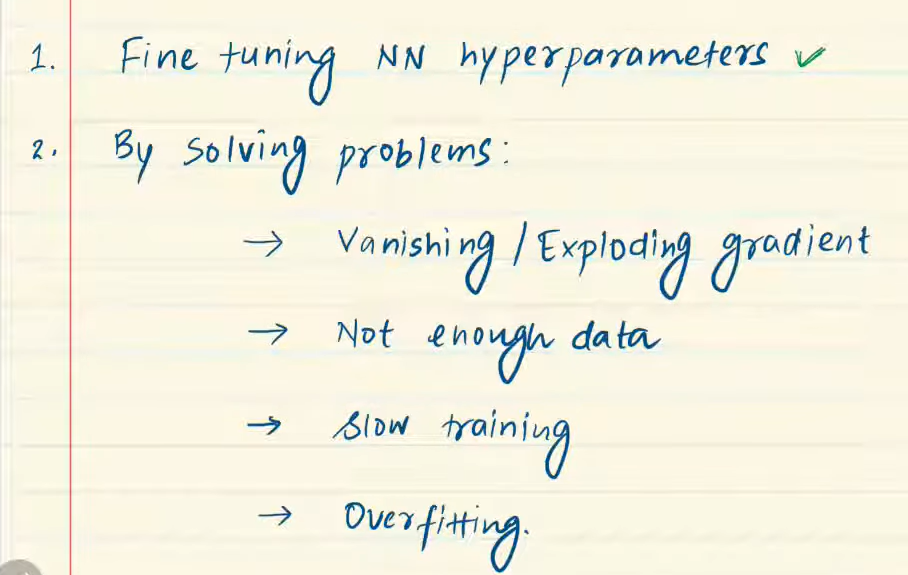 1. Fine tuning NN hyperparameters ✓
2. By solving problems:
→ Vanishing / Exploding gradient
→ Not enough data
→ Slow training
→ Overfitting.